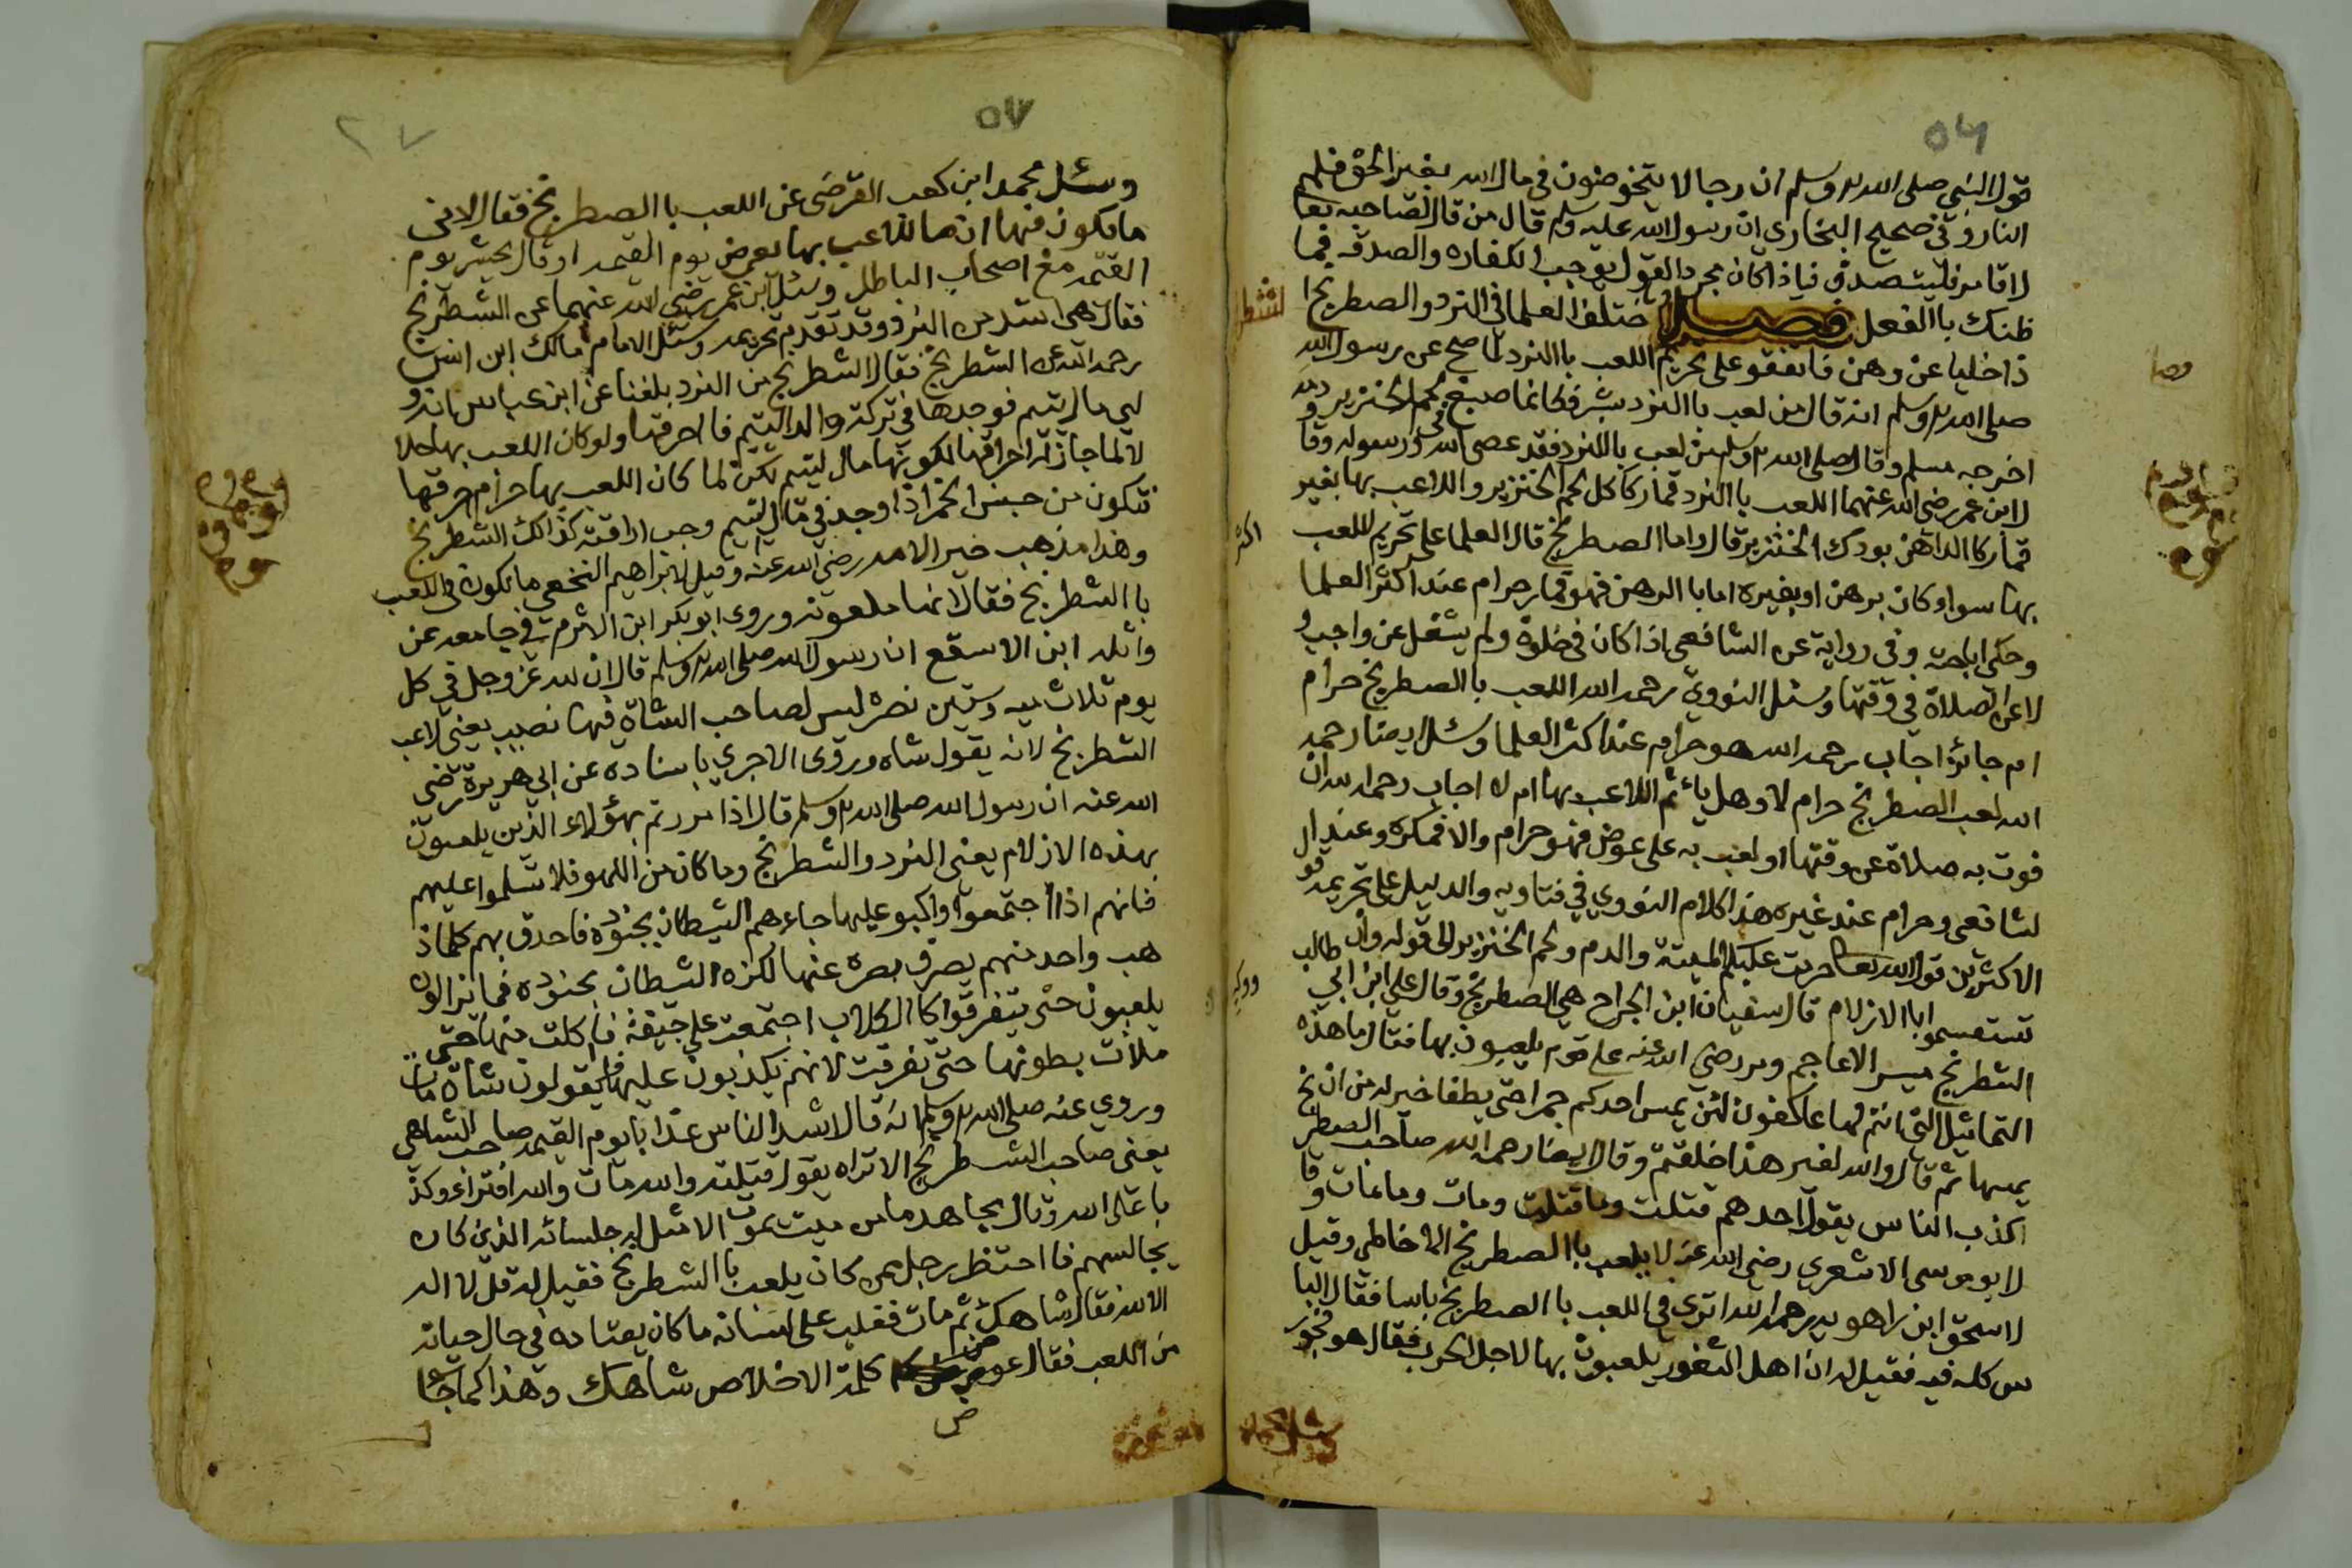 ٥٦
قول النبي صلى الله عليه وسلم ان رجالا يتخوضون في مال الله بغير الحق فلهم
النار وفي صحيح البخاري ان رسول الله عليه وسلم قال من قال لصاحبه تعا
لا قامر فليتصدق فياذا كان مجرد القول يوجب الكفاره والصدقه فما
ظنك باالفعل فصل اختلف العلما في النرد والصطريخ ا
ذا خليا عن وهن فاتفقو على تحريم اللعب باالنرد لما صح عن رسول الله
صلى الله عليه وسلم انه قال من لعب باالنرد بشر فكانما صبغ بلحم الخنزير ودمه
اخرجه مسلم وقال صلى الله عليه وسلم من لعب باالنرد فقد عصى الله ورسوله وقا
لابن عمر رضي الله عنهما اللعب باالنرد قمار كاكل لحم الخنزير واللاعب بها بغير
قمار كاالداهن بودك الخنزير قال واما الصطريخ قال العلما على تحريم للعب
بها سوا وكان برهن او بغيره اما باالرهن فهو قمار حرام عند اكثر العلما
وحكى اباحته وفي رواية عن الشافعي اذا كان في خلوة ولم يشغل عن واجب و
لا عن الصلاة في وقتها وسئل النووي رحمه الله اللعب باالصطريخ حرام
ام جائز اجاب رحمه الله هو حرام عند اكثر العلما وسئل ايضا رحمه
الله لعب الصطريخ حرام لا وهل يأثم اللاعب بها ام لا اجاب رحمه الله ان
فوت به صلاة عن وقتها او لعب به على عوض فهو حرام والا فمكره وعند ال
لشافعي وحرام عند غيره هذا كلام النووي في فتاويه والدليل على تحريمه قو
الاكثرين قول الله تعا حرمت عليكم الميتة والدم ولحم الخنزير الى قوله وان
تستقسموا باالازلام قال سفيان ابن الجراح هي الصطريخ وقال علي ابن ابي طالب
الشطرنج ميسر الاعاجم ومر رضي الله عنه على قوم يلعبون بها فقال ما هذه
التماثيل التي انتم لها عاكفون لئن يمس احدكم جمرا حتى يطفا خير له من ان
يمسها ثم قال والله لغير هذا خلقتم وقال ايضا رحمه الله صاحب الصطريخ
اكذب الناس يقول احدهم قتلت وما قتلت ومات وما مات وقا
لابو موسى الاشعري رضي الله عنه لا يلعب باالصطريخ الا خاطي وقيل
لاسحق ابن راهويه رحمه الله اترى في اللعب باالصطريخ باسا فقال البا
س كله فيه فقيل له ان اهل الثغور يلعبون بها لاجل الحرب فقال هو فجور
٥٧
٢٧
وسئل محمد ابن كعب القرضى عن اللعب باالصطريخ فقال لادنى
ما يكون فيها ان صاللاعب بها يعرض يوم القيمه او قال يحشر يوم
القيمه مع اصحاب الباطل وسئل ابن عمر رضي الله عنهما عن الشطرنج
فقال هي اشد من النرد وقد تقدم تحريمه وسئل الامام مالك ابن انس
رحمه الله عن الشطرنج فقال الشطرنج من النرد بلغنا عن ابن عباس انه و
لي مال يتيم فوجدها في تركة والد اليتيم فاحرقها ولو كان اللعب بها حلا
لا لما جاز له احراقها لكونها مال ليتيم لكن لما كان اللعب بها حرام حرقها
فتكون من جنس الخمر اذا وجد في مال يتيم وجب اراقته كذالك الشطرنج
وهذا مذهب خير الامه رضي الله عنه وقيل لابراهيم النخعي ما تكون في اللعب
باالشطرنج فقال انها ملعونه وروى ابو بكر ابن الاثرم في جامعه عن
واثله ابن الاسقع ان رسول الله صلى الله عليه وسلم قال ان لله عز وجل في كل
يوم ثلاث ميه وستين نضره ليس لصاحب الشاة فيها نصيب يعني لاعب
الشطرنج لانه يقول شاه وروى الاجري باسناده عن ابي هريرة رضي
الله عنه ان رسول الله صلى الله عليه وسلم قال اذا مررتم بهؤلاء الذين يلعبون
بهذه الازلام يعني النرد والشطرنج وما كان من اللهو فلا تسلموا عليهم
فانهم اذا اجتمعوا واكبو عليها جاءهم الشيطان بجنوده فاحدق بهم كلما ذ
هب واحد منهم يصرف بصره عنها لكزه الشيطان بجنوده فما يزالون
يلعبون حتى يتفرقوا كاالكلاب اجتمعت على جيفة فاكلت منها حتى
ملات بطونها حتى تفرقت لانهم يكذبون عليها فيقولون شاة مات
وروي عنه صلى الله عليه وسلم انه قال اشد الناس عذابا يوم القيمه صاحب الشاهي
يعني صاحب الشطرنج الا تراه يقول قتلته والله مات والله افتراء وكذ
با على الله وقال مجاهد ما من ميت يموت الا مثل له جلسائه الذين كان
يجالسهم فااحتظر رجل ممن كان يلعب باالشطرنج فقيل له قل لا اله
الا الله فقال شاهك ثم مات فغلب على لسانه ما كان يعتاده في حال حياته
من اللعب فقال عوض كلمة الاخلاص شاهك وهذا كما جا